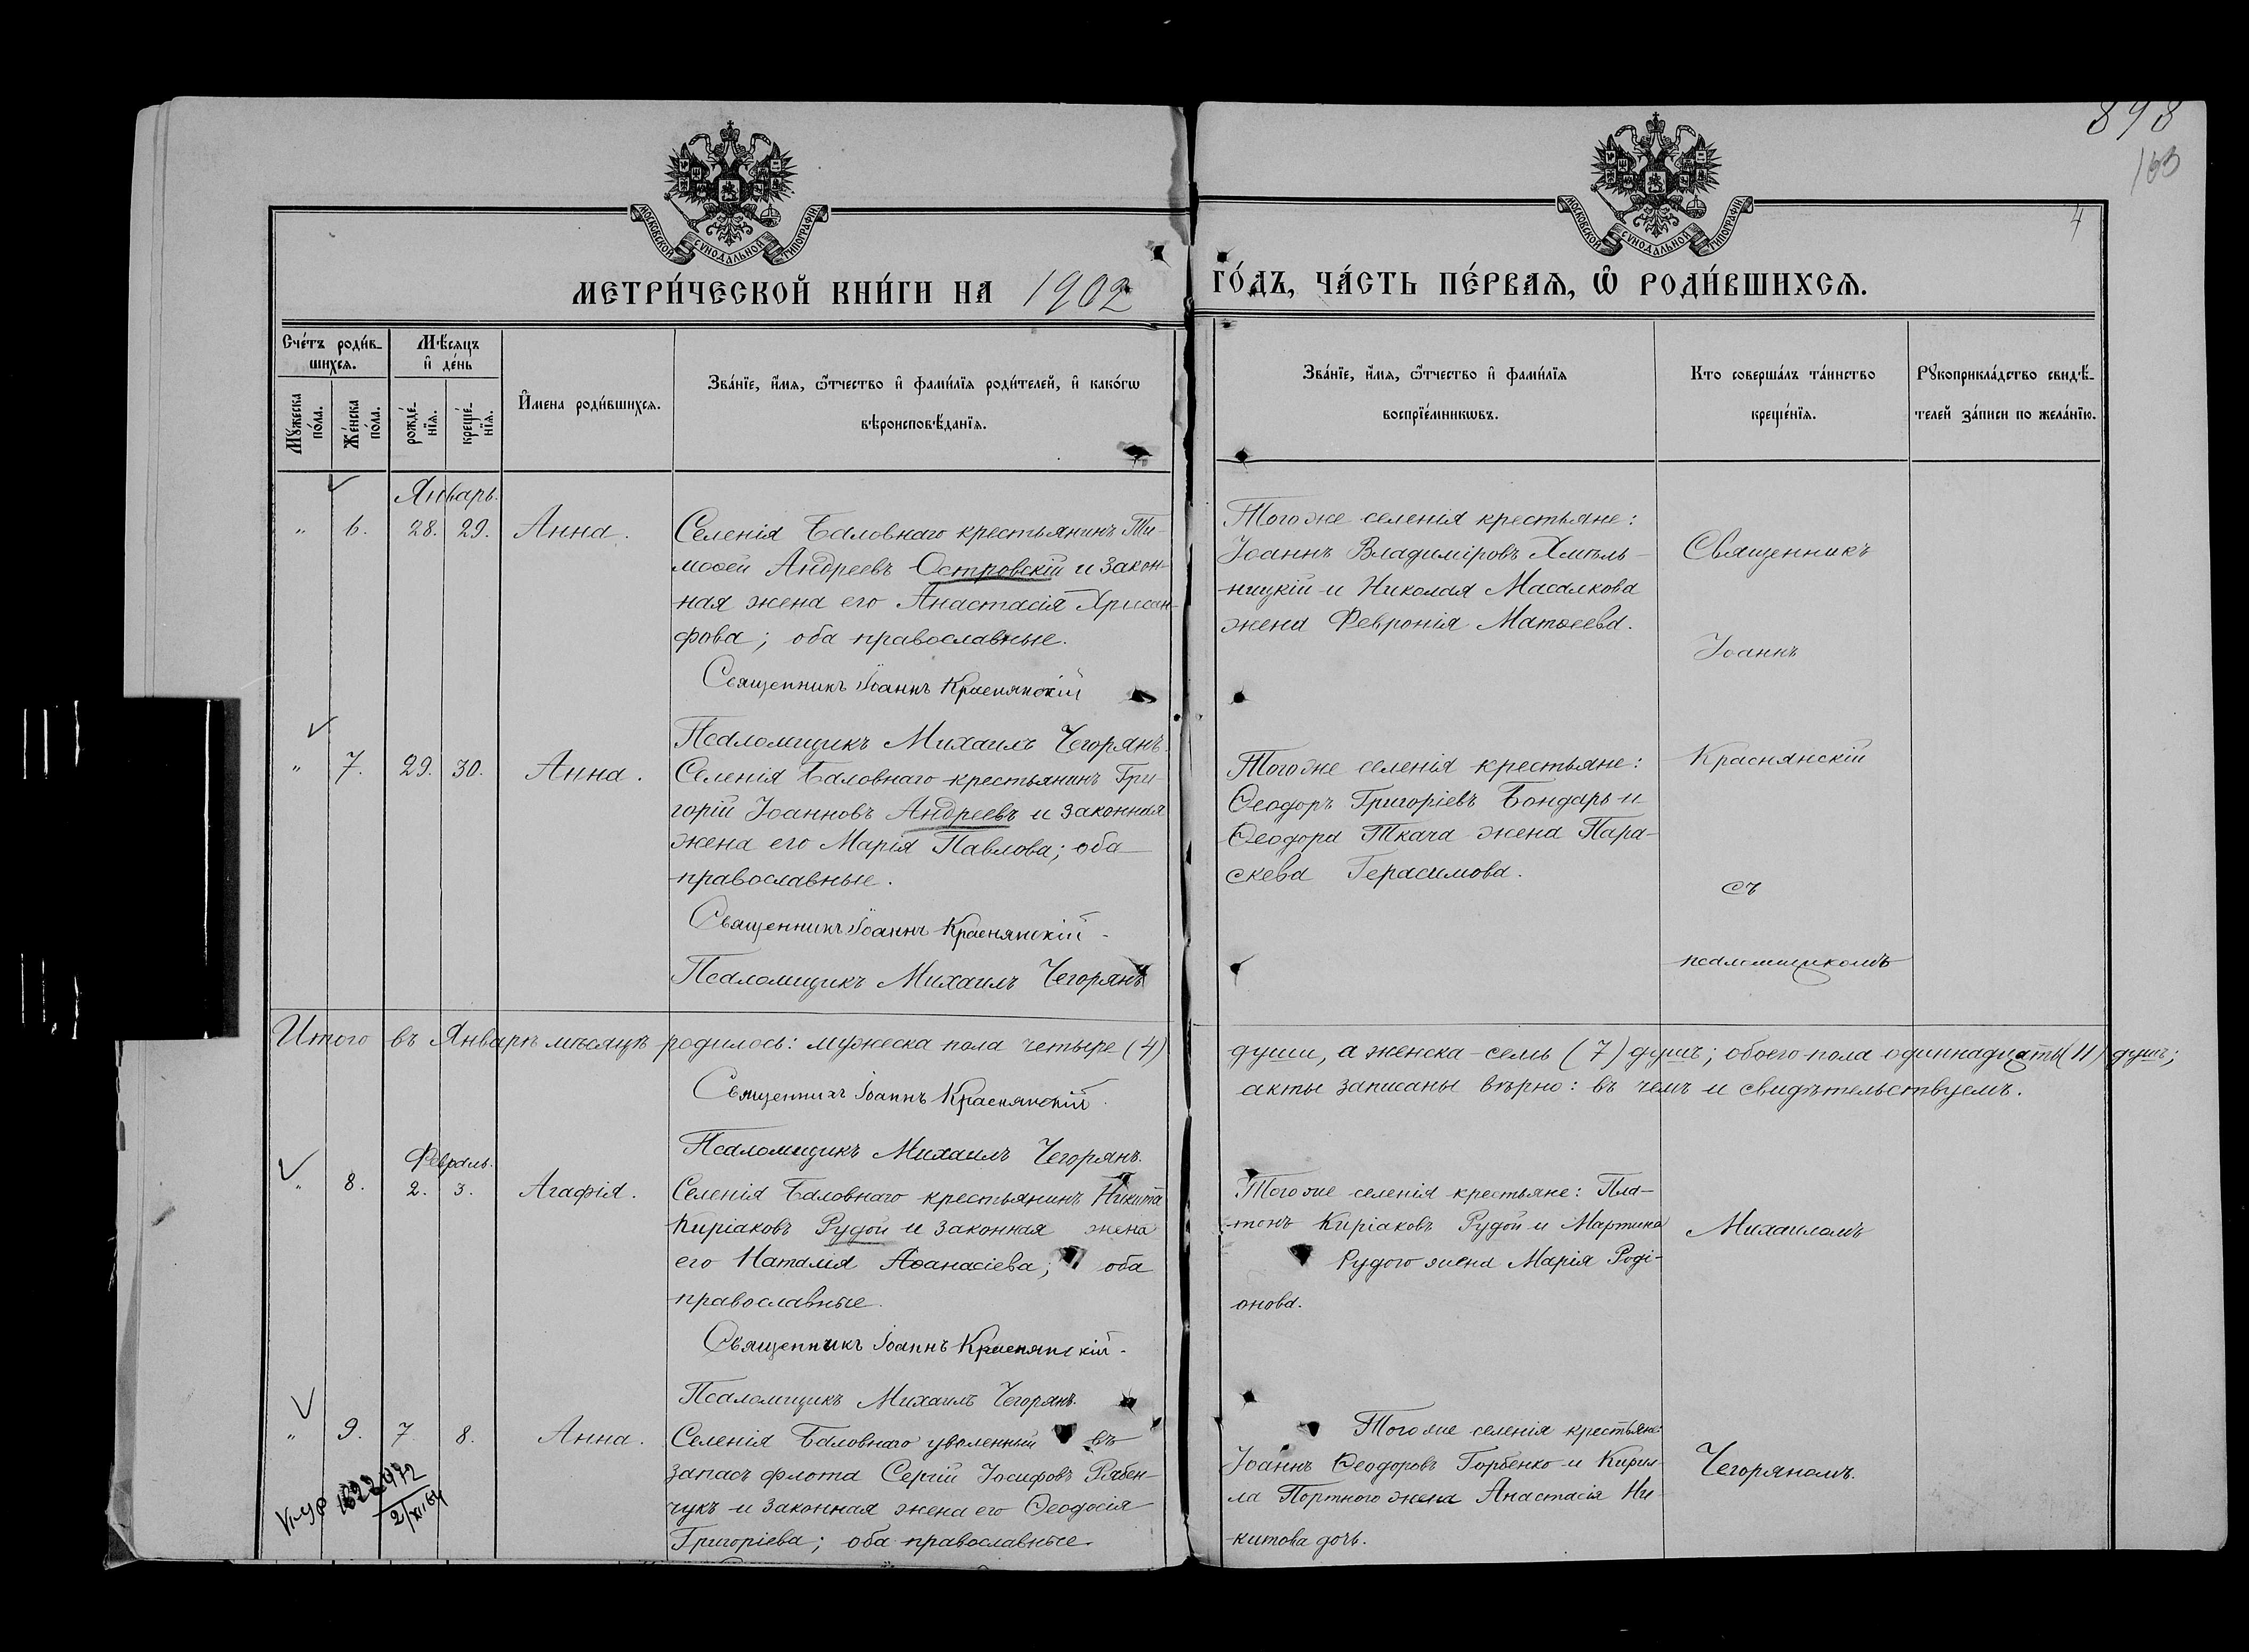 898
163
4
МОСКОВСКОЙ СѴНОДАЛЬНОЙ ТИПОГРАФІИ
МОСКОВСКОЙ СѴНОДАЛЬНОЙ ТИПОГРАФІИ
МЕТРИ́ЧЕСКОЙ КНИ́ГИ НА 1902 ГО́ДЪ, ЧА́СТЬ ПЕ́РВАѦ, Ѽ РОДИ́ВШИХСѦ.
Сче́тъ роди́в-
шихсѧ.
Мꙋ́жеска
по́ла.
Же́нска
по́ла.
Мѣ́сѧцъ
и҆ де́нь
рожде́-
нїѧ.
креще́-
нїѧ.
И҆мена роди́вшихсѧ.
Зва́нїе, и҆́мѧ, ѻ҆́тчество и҆ фами́лїѧ роди́телей, и҆ како́гѡ
вѣроисповѣ́данїѧ.
Зва́нїе, и҆́мѧ, ѻ҆́тчество и҆ фами́лїѧ
воспрїе́мникѡвъ.
Кто соверша́лъ та́инство
креще́нїѧ.
Рꙋкоприкла́дство свидѣ́-
телей за́писи по жела́нїю.
Январь.
" 6. 28. 29. Анна.
Селенія Баловнаго крестьянинъ Ти-
моѳей Андреевъ Островскій и закон-
ная жена его Анастасія Хрисан-
фова; оба православные.
Священникъ Іоаннъ Краснянскій
Псаломщикъ Михаилъ Чегорянъ.
Тогоже селенія крестьяне:
Іоаннъ Владиміровъ Хмѣль-
ницкій и Николая Масалкова
жена Февронія Матѳеева.
" 7. 29. 30. Анна.
Селенія Баловнаго крестьянинъ Гри-
горій Іоанновъ Андреевъ и законная
жена его Марія Павлова; оба
православные.
Священникъ Іоаннъ Краснянскій.
Псаломщикъ Михаилъ Чегорянъ
Тогоже селенія крестьяне:
Ѳеодоръ Григоріевъ Бондарь и
Ѳеодора Ткача жена Пара-
скева Герасимова.
Итого въ Январѣ мѣсяцѣ родилось: мужеска пола четыре (4) души, а женска-семь (7) душъ; обоего пола одиннадцать (11) душъ;
акты записаны вѣрно: въ чемъ и свидѣтельствуемъ.
Священникъ Іоаннъ Краснянскій.
Псаломщикъ Михаилъ Чегорянъ.
Февраль.
" 8. 2. 3. Агафія.
Селенія Баловнаго крестьянинъ Никита
Киріаковъ Рудой и законная жена
его Наталія Аѳанасіева; оба
православные.
Священникъ Іоаннъ Краснянскій.
Псаломщикъ Михаилъ Чегорянъ.
Тогоже селенія крестьяне: Пла-
тонъ Киріаковъ Рудой и Мартина
Рудого жена Марія Роді-
онова.
" 9. 7. 8. Анна.
Селенія Баловнаго уволенный въ
запасъ флота Сергій Іосифовъ Рябен-
чукъ и законная жена его Ѳеодосія
Григоріева; оба православные.
Тогоже селенія крестьяне
Іоаннъ Ѳеодоровъ Горбенко и Кирил-
ла Портного жена Анастасія Ни-
китова дочь.
Священникъ
Іоаннъ
Краснянскій
съ
псаломщикомъ
Михаиломъ
Чегоряномъ.